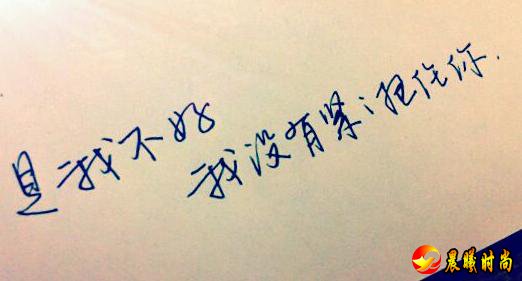 是我不好
我没有紧紧把住你.
晨曦时尚